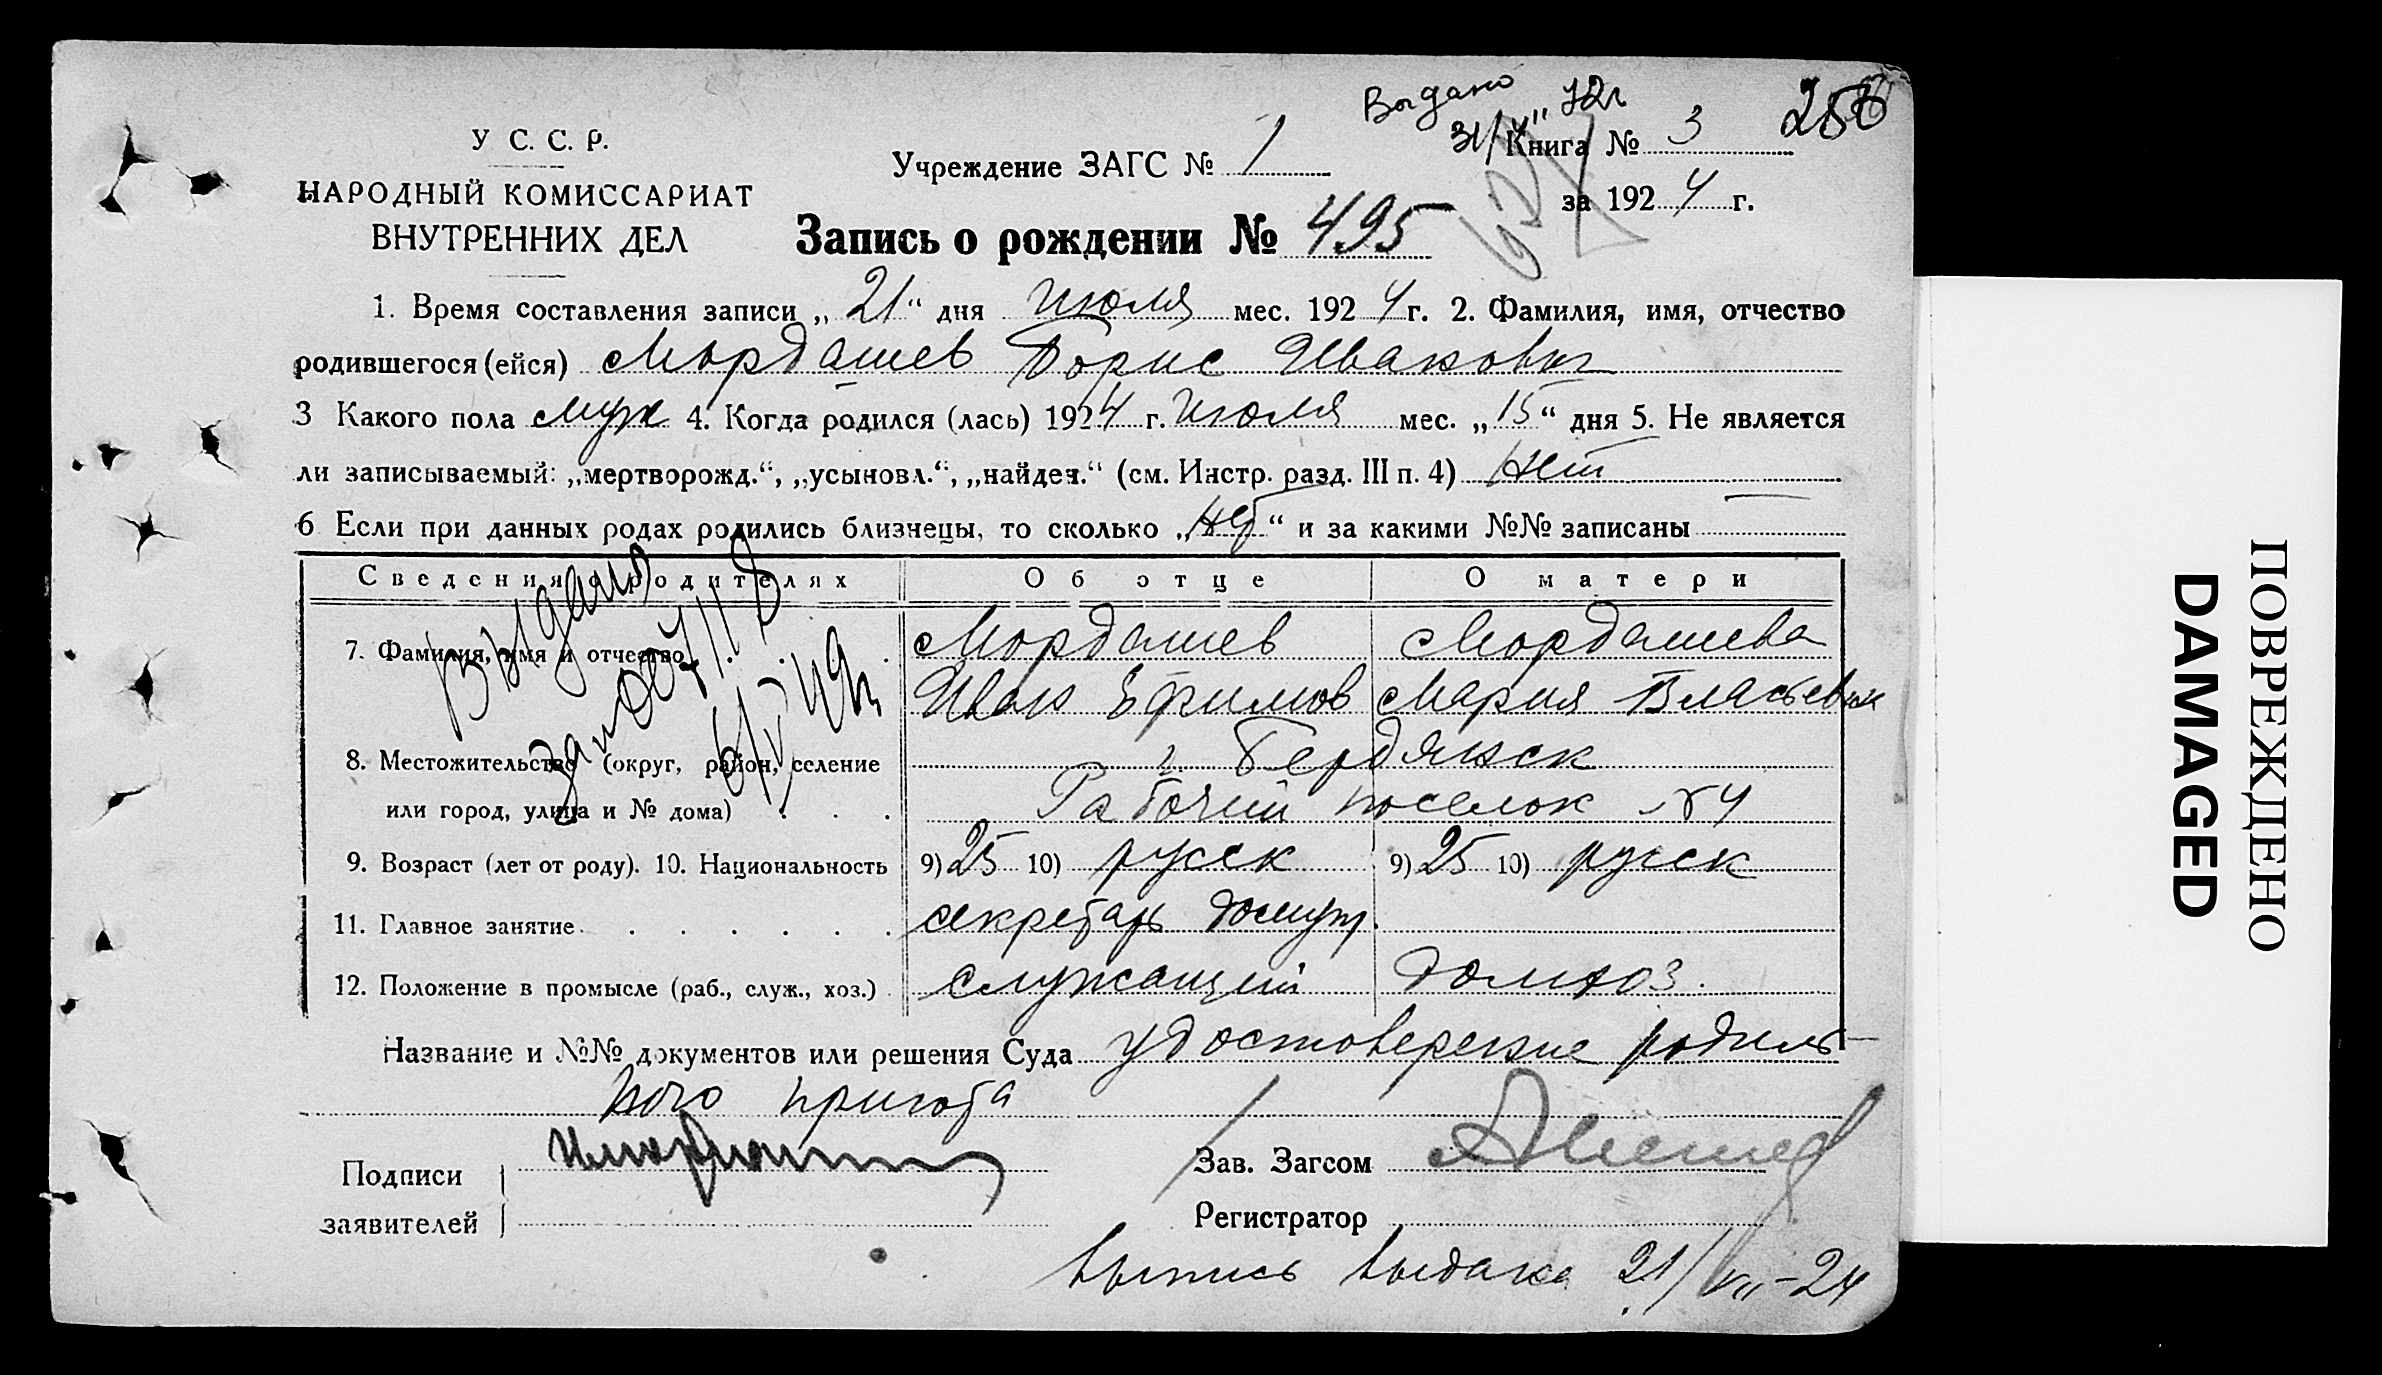 Выдано
31/V" 72г
258
У С. С. Р.
НАРОДНЫЙ КОМИССАРИАТ
ВНУТРЕННИХ ДЕЛ
Учреждение ЗАГС № 1
Книга № 3
за 1924 г.
Запись о рождении № 495
1. Время составления записи „21“ дня июля мес. 1924 г. 2. Фамилия, имя, отчество
родившегося (ейся) Мордашев Борис Иванович
3 Какого пола муж 4. Когда родился (лась) 1924 г. июля мес. „15“ дня 5. Не является
ли записываемый: „мертворожд.“, „усыновл.“, „найден.“ (см. Инстр. разд. III п. 4) Нет
6 Если при данных родах родились близнецы, то сколько „Нет“ и за какими №№ записаны —
Сведения о родителях Об отце О матери
7. Фамилия, имя и отчество Мордашев Мордашева
Иван Ефимов Мария Власьевн
8. Местожительство (округ, район, селение г. Бердянск
или город, улица и № дома) Рабочий поселок № 4
9. Возраст (лет от роду). 10. Национальность 9) 25 10) русск 9) 25 10) русск
11. Главное занятие секретарь
12. Положение в промысле (раб., служ., хоз.) служащий домхоз.
Выдано
Название и №№ документов или решения Суда удостоверение родиль-
ного приюта
Подписи
заявителей
Зав. Загсом
Регистратор
выпись выдана 21/VII-24
ПОВРЕЖДЕНО
DAMAGED